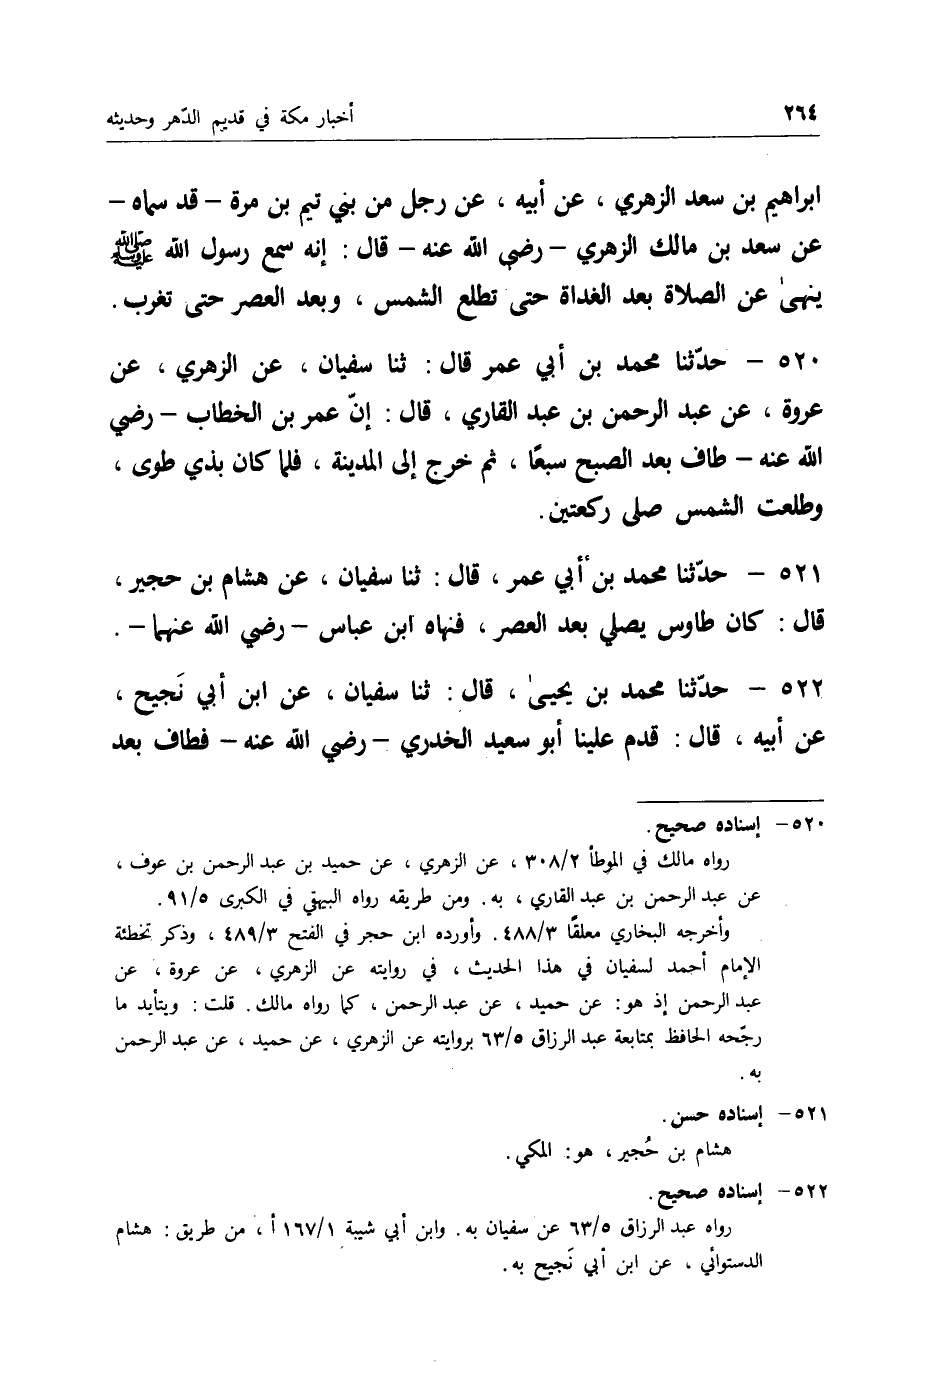 ٢٦٤
أخبار مكة في قديم الدّهر وحديثه
ابراهيم بن سعد الزهري ، عن أبيه ، عن رجل من بني تيم بن مرة – قد سماه –
عن سعد بن مالك الزهري – رضي الله عنه – قال : إنه سمع رسول الله ﷺ
ينهىٰ عن الصلاة بعد الغداة حتى تطلع الشمس ، وبعد العصر حتى تغرب .
٥٢٠ – حدّثنا محمد بن أبي عمر قال : ثنا سفيان ، عن الزهري ، عن
عروة ، عن عبد الرحمن بن عبد القاري ، قال : إنّ عمر بن الخطاب – رضي
الله عنه – طاف بعد الصبح سبعًا ، ثم خرج إلى المدينة ، فلما كان بذي طوى ،
وطلعت الشمس صلى ركعتين .
٥٢١ – حدّثنا محمد بن أبي عمر ، قال : ثنا سفيان ، عن هشام بن حجير ،
قال : كان طاوس يصلي بعد العصر ، فنهاه ابن عباس – رضي الله عنهما – .
٥٢٢ – حدّثنا محمد بن يحيىٰ ، قال : ثنا سفيان ، عن ابن أبي نَجيح ،
عن أبيه ، قال : قدم علينا أبو سعيد الخدري – رضي الله عنه – فطاف بعد
٥٢٠– إسناده صحيح .
رواه مالك في الموطأ ٣٠٨/٢ ، عن الزهري ، عن حميد بن عبد الرحمن بن عوف ،
عن عبد الرحمن بن عبد القاري ، به . ومن طريقه رواه البيهقي في الكبرى ٩١/٥ .
وأخرجه البخاري معلقًا ٤٨٨/٣ . وأورده ابن حجر في الفتح ٤٨٩/٣ ، وذكر تخطئة
الإمام أحمد لسفيان في هذا الحديث ، في روايته عن الزهري ، عن عروة ، عن
عبد الرحمن إذ هو : عن حميد ، عن عبد الرحمن ، كما رواه مالك . قلت : ويتأيد ما
رجّحه الحافظ بمتابعة عبد الرزاق ٦٣/٥ بروايته عن الزهري ، عن حميد ، عن عبد الرحمن
به .
٥٢١– إسناده حسن .
هشام بن حُجير ، هو : المكي .
٥٢٢– إسناده صحيح .
رواه عبد الرزاق ٦٣/٥ عن سفيان به . وابن أبي شيبة ١٦٧/١ أ ، من طريق : هشام
الدستوائي ، عن ابن أبي نَجيح به .